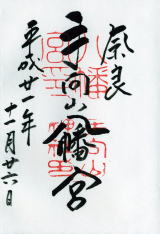 奈良
手向山八幡宮
平成廿一年
十一月廿六日